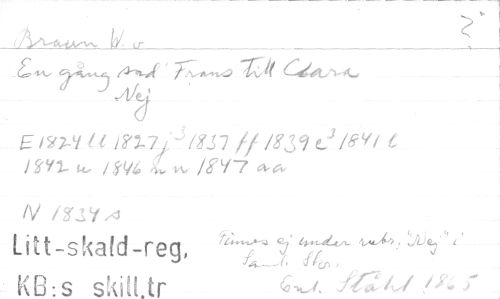 Braun W. v
?
En gång sad' Frans till Clara
Nej
E 1824 ll 1827 j³ 1837 ff 1839 c³ 1841 l
1842 u 1846 n n 1847 aa
N 1834 s
Litt-skald-reg.
KB:s skill.tr
Finnes ej under rubr. "Nej" i
Saml. Skr.
Enl. Ståhl 1865